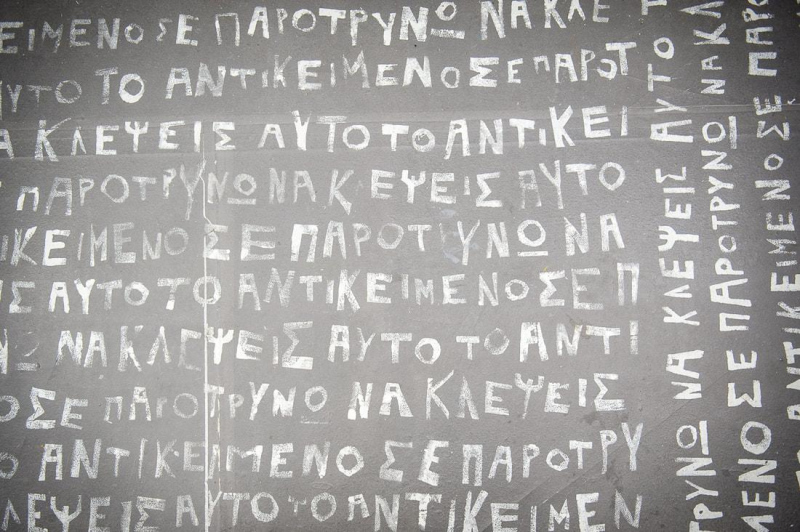 ΕΙΜΕΝΟ ΣΕ ΠΑΡΟΤΡΥΝΩ ΝΑ ΚΛΕ
ΑΥΤΟ ΤΟ ΑΝΤΙΚΕΙΜΕΝΟ ΣΕ ΠΑΡΟΤ
ΝΑ ΚΛΕΨΕΙΣ ΑΥΤΟ ΤΟ ΑΝΤΙΚΕΙ
ΠΑΡΟΤΡΥΝΩ ΝΑ ΚΛΕΨΕΙΣ ΑΥΤΟ
ΙΚΕΙΜΕΝΟ ΣΕ ΠΑΡΟΤΡΥΝΩ ΝΑ
ΙΣ ΑΥΤΟ ΤΟ ΑΝΤΙΚΕΙΜΕΝΟ ΣΕ Π
ΝΩ ΝΑ ΚΛΕΨΕΙΣ ΑΥΤΟ ΤΟ ΑΝΤΙ
ΟΣΕ ΠΑΡΟΤΡΥΝΩ ΝΑ ΚΛΕΨΕΙΣ
Ο ΑΝΤΙΚΕΙΜΕΝΟ ΣΕ ΠΑΡΟΤΡΥ
ΛΕΨΕΙΣ ΑΥΤΟ ΤΟ ΑΝΤΙΚΕΙΜΕΝ
ΤΡΥΝΩ ΝΑ ΚΛΕΨΕΙΣ ΑΥΤΟ Τ
ΜΕΝΟ ΣΕ ΠΑΡΟΤΡΥΝΩ ΝΑ ΚΛ
ΑΝΤΙΚΕΙΜΕΝΟ ΣΕ ΠΑΡΟ